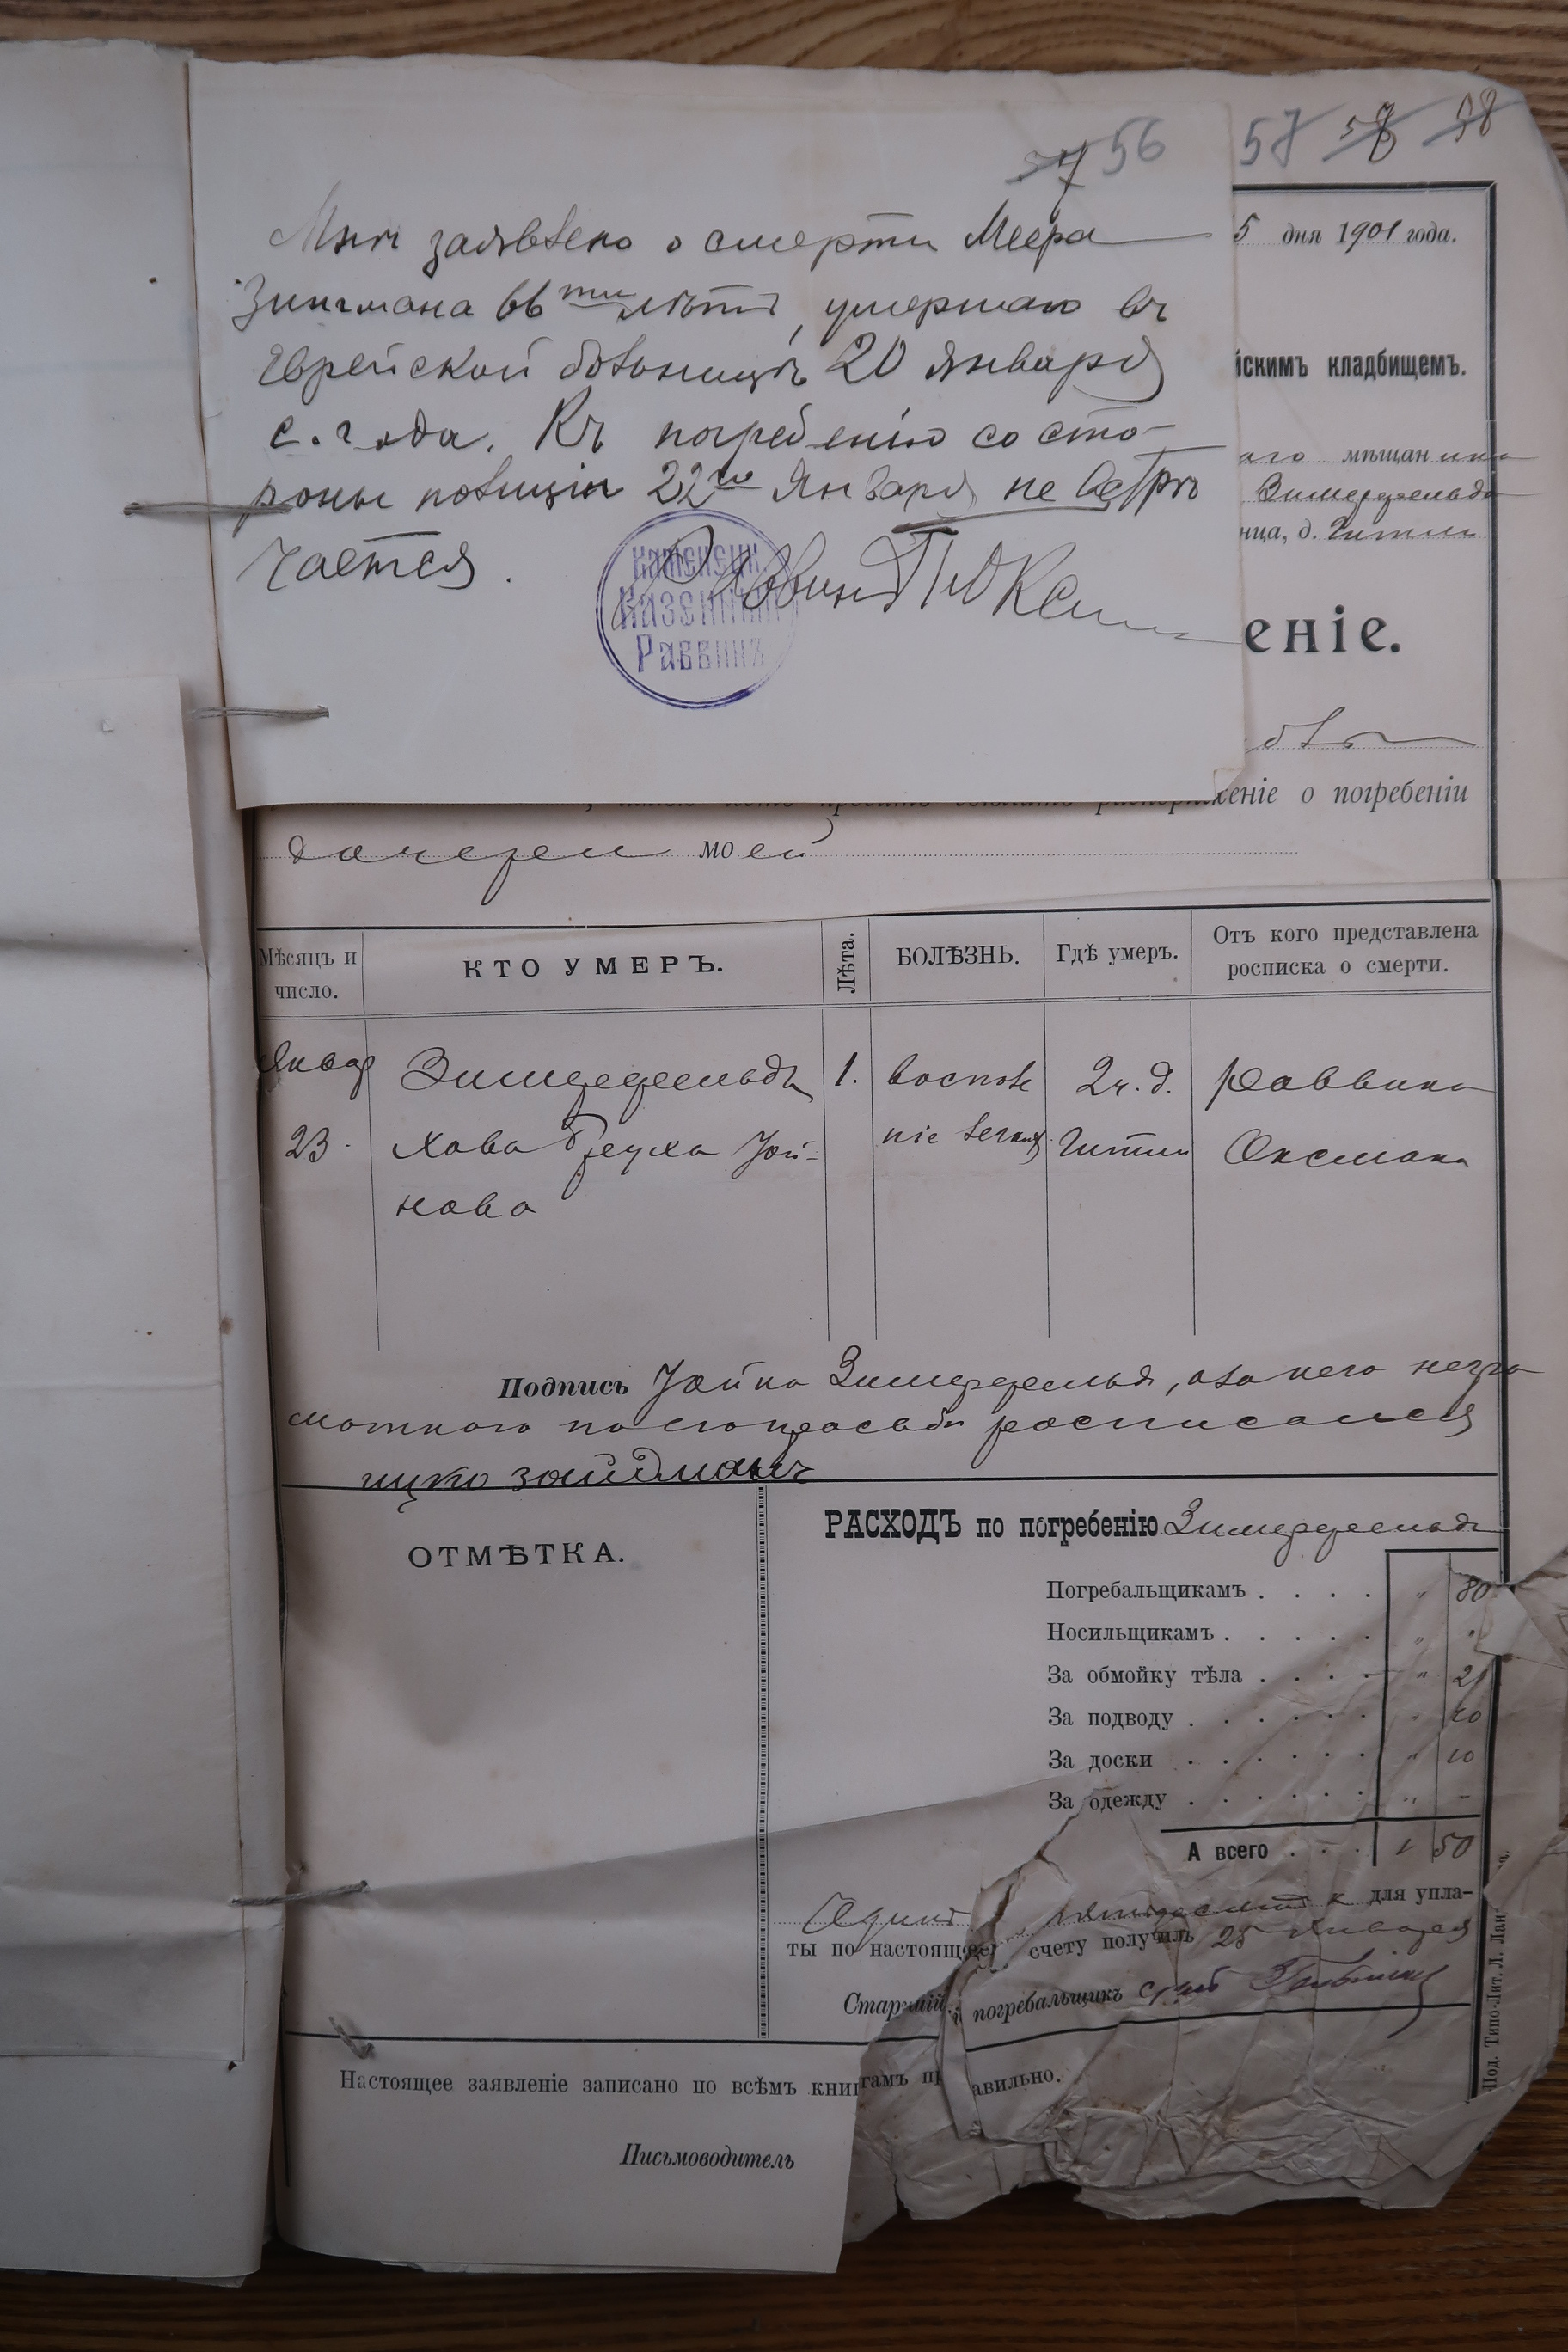 57 56
Мнѣ заявлено о смерти Меера
Зингмана 66ти лѣтъ, умершаго въ
Еврейской больницѣ 20 Января
с. года. Къ погребенію со сто-
роны полиціи 22го Января не встрѣ
чается.
Раввинъ
Каменецк.
Казенный
Раввинъ
57 58 98
5 дня 1901 года.
йскимъ кладбищемъ.
аго мѣщанина
Зимерфельда
нца, д. Гитли
еніе.
женіе о погребеніи
дочери моей
Мѣсяцъ и число.
КТО УМЕРЪ.
Лѣта.
БОЛѢЗНЬ.
Гдѣ умеръ.
Отъ кого представлена росписка о смерти.
Январ Зимерфельдъ 1. воспале 2ч. д. раввина
23. Хава Бруха Хай- ніе легких Гитли Оксмана
нова
Подпись Зимерфельд, а за него негра
мотного по его просьбѣ росписался
ицко зайдманъ
ОТМѢТКА.
РАСХОДЪ по погребенію Зимерфельдъ
Погребальщикамъ . . . . " 80
Носильщикамъ . . . . . " "
За обмойку тѣла . . . . "
За подводу . . . . . . "
За доски . . . . . . "
За одежду . . . . . . " -
А всего . . . 1 50
Один пятьдесят к для упла-
ты по настоящему счету получилъ 25 Января
Старшій погребальщикъ
Настоящее заявленіе записано по всѣмъ книгамъ правильно.
Письмоводитель
Под. Типо-Лит. Л. Лан